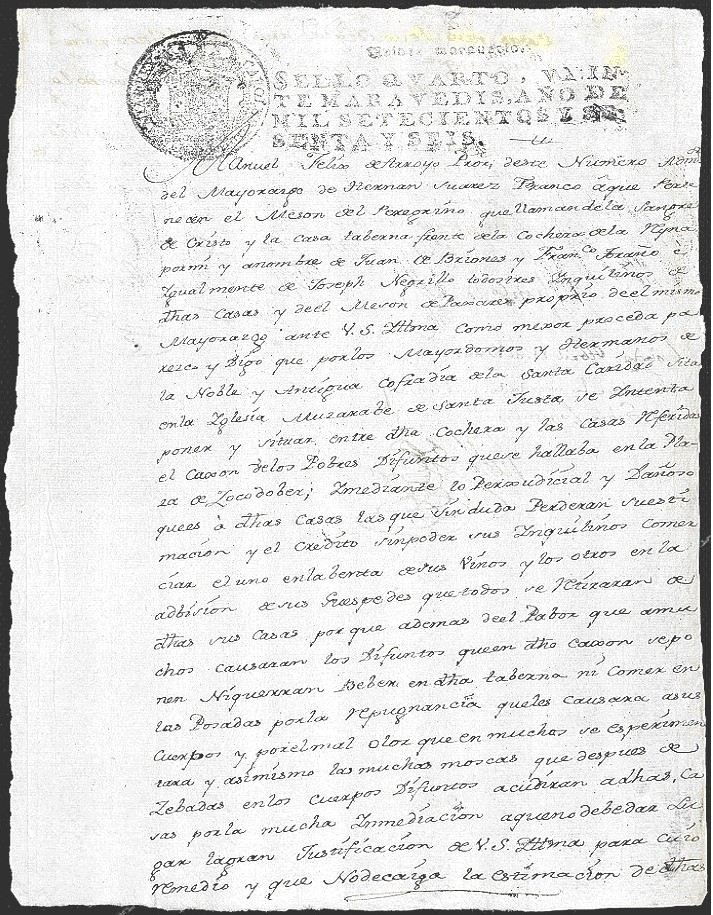 SELLO QVARTO, VEIN-
TE MARAVEDIS, AÑO DE
MIL SETECIENTOS Y SE-
SENTA Y SEIS.
Manuel Felix de Arroyo Pror, deste Numero Admr
del Mayorazgo de Hernan Suarez Franco aque Perte
necen el Meson del Peregrino que llaman dela Sangre
de Cristo y la Casa taberna frente dela Cochera dela Reyna
pormi y anombre de Juan de Briones y Franco Braño è
Igualmente de Joseph Negrillo todos tres Inquilinos de
dhas Casas y de el Meson de proprio de el mismo
Mayorazgo ante V. S. Yttma como mexor proceda pa
rezco y Digo que por los Mayordomos y Hermanos de
la Noble y Antigua Cofradia de la Santa Caridad sita
en la Yglesia Muzarabe de Santa Justa se Intenta
poner y situar entre dha Cochera y las Casas Referidas
el Caxon delos Pobres Difuntos que se hallaba en la Pla-
za de Zocodober; Ymediante lo Perxudicial y Dañoso
que es à dhas Casas las que sin duda Perderan su esti
macion y el Credito sin poder sus Inquilinos Comer
ciar el uno en la benta de sus Vinos y los otros en la
adbision de sus Huespedes que todos se Retiraran de
dhas sus Casas por que ademas de el Pabor que a mu
chos causaran los Difuntos que en dho caxon se po
nen Ni querran Beber en dha taberna ni Comer en
las Posadas por la repugnancia que les causara a sus
Cuerpos y por el mal olor que en muchos se esperimen
tara y asimismo las muchas moscas que despues de
Zebadas en los Cuerpos Difuntos acudiran a dhas, Ca
sas por la mucha Inmediacion a que no debe dar Lu
gar la gran Justificacion de V. S. Yttma para cuio
remedio y que No decaiga la estimacion de dhas